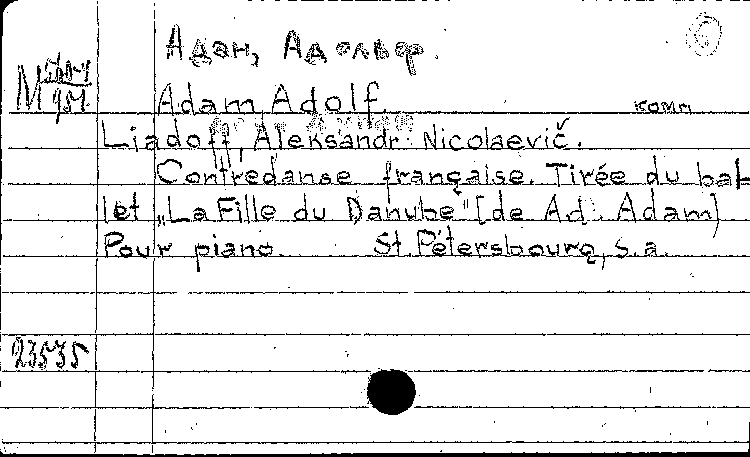 Адан, Адольф.
Adam, Adolf.
комп
Liadoff, Aleksandr Nicolaevič.
Contredanse française. Tirée du bal-
let „La Fille du Danube" [de Ad. Adam]
Pour piano. St. Pétersbourg, s.a.
23535